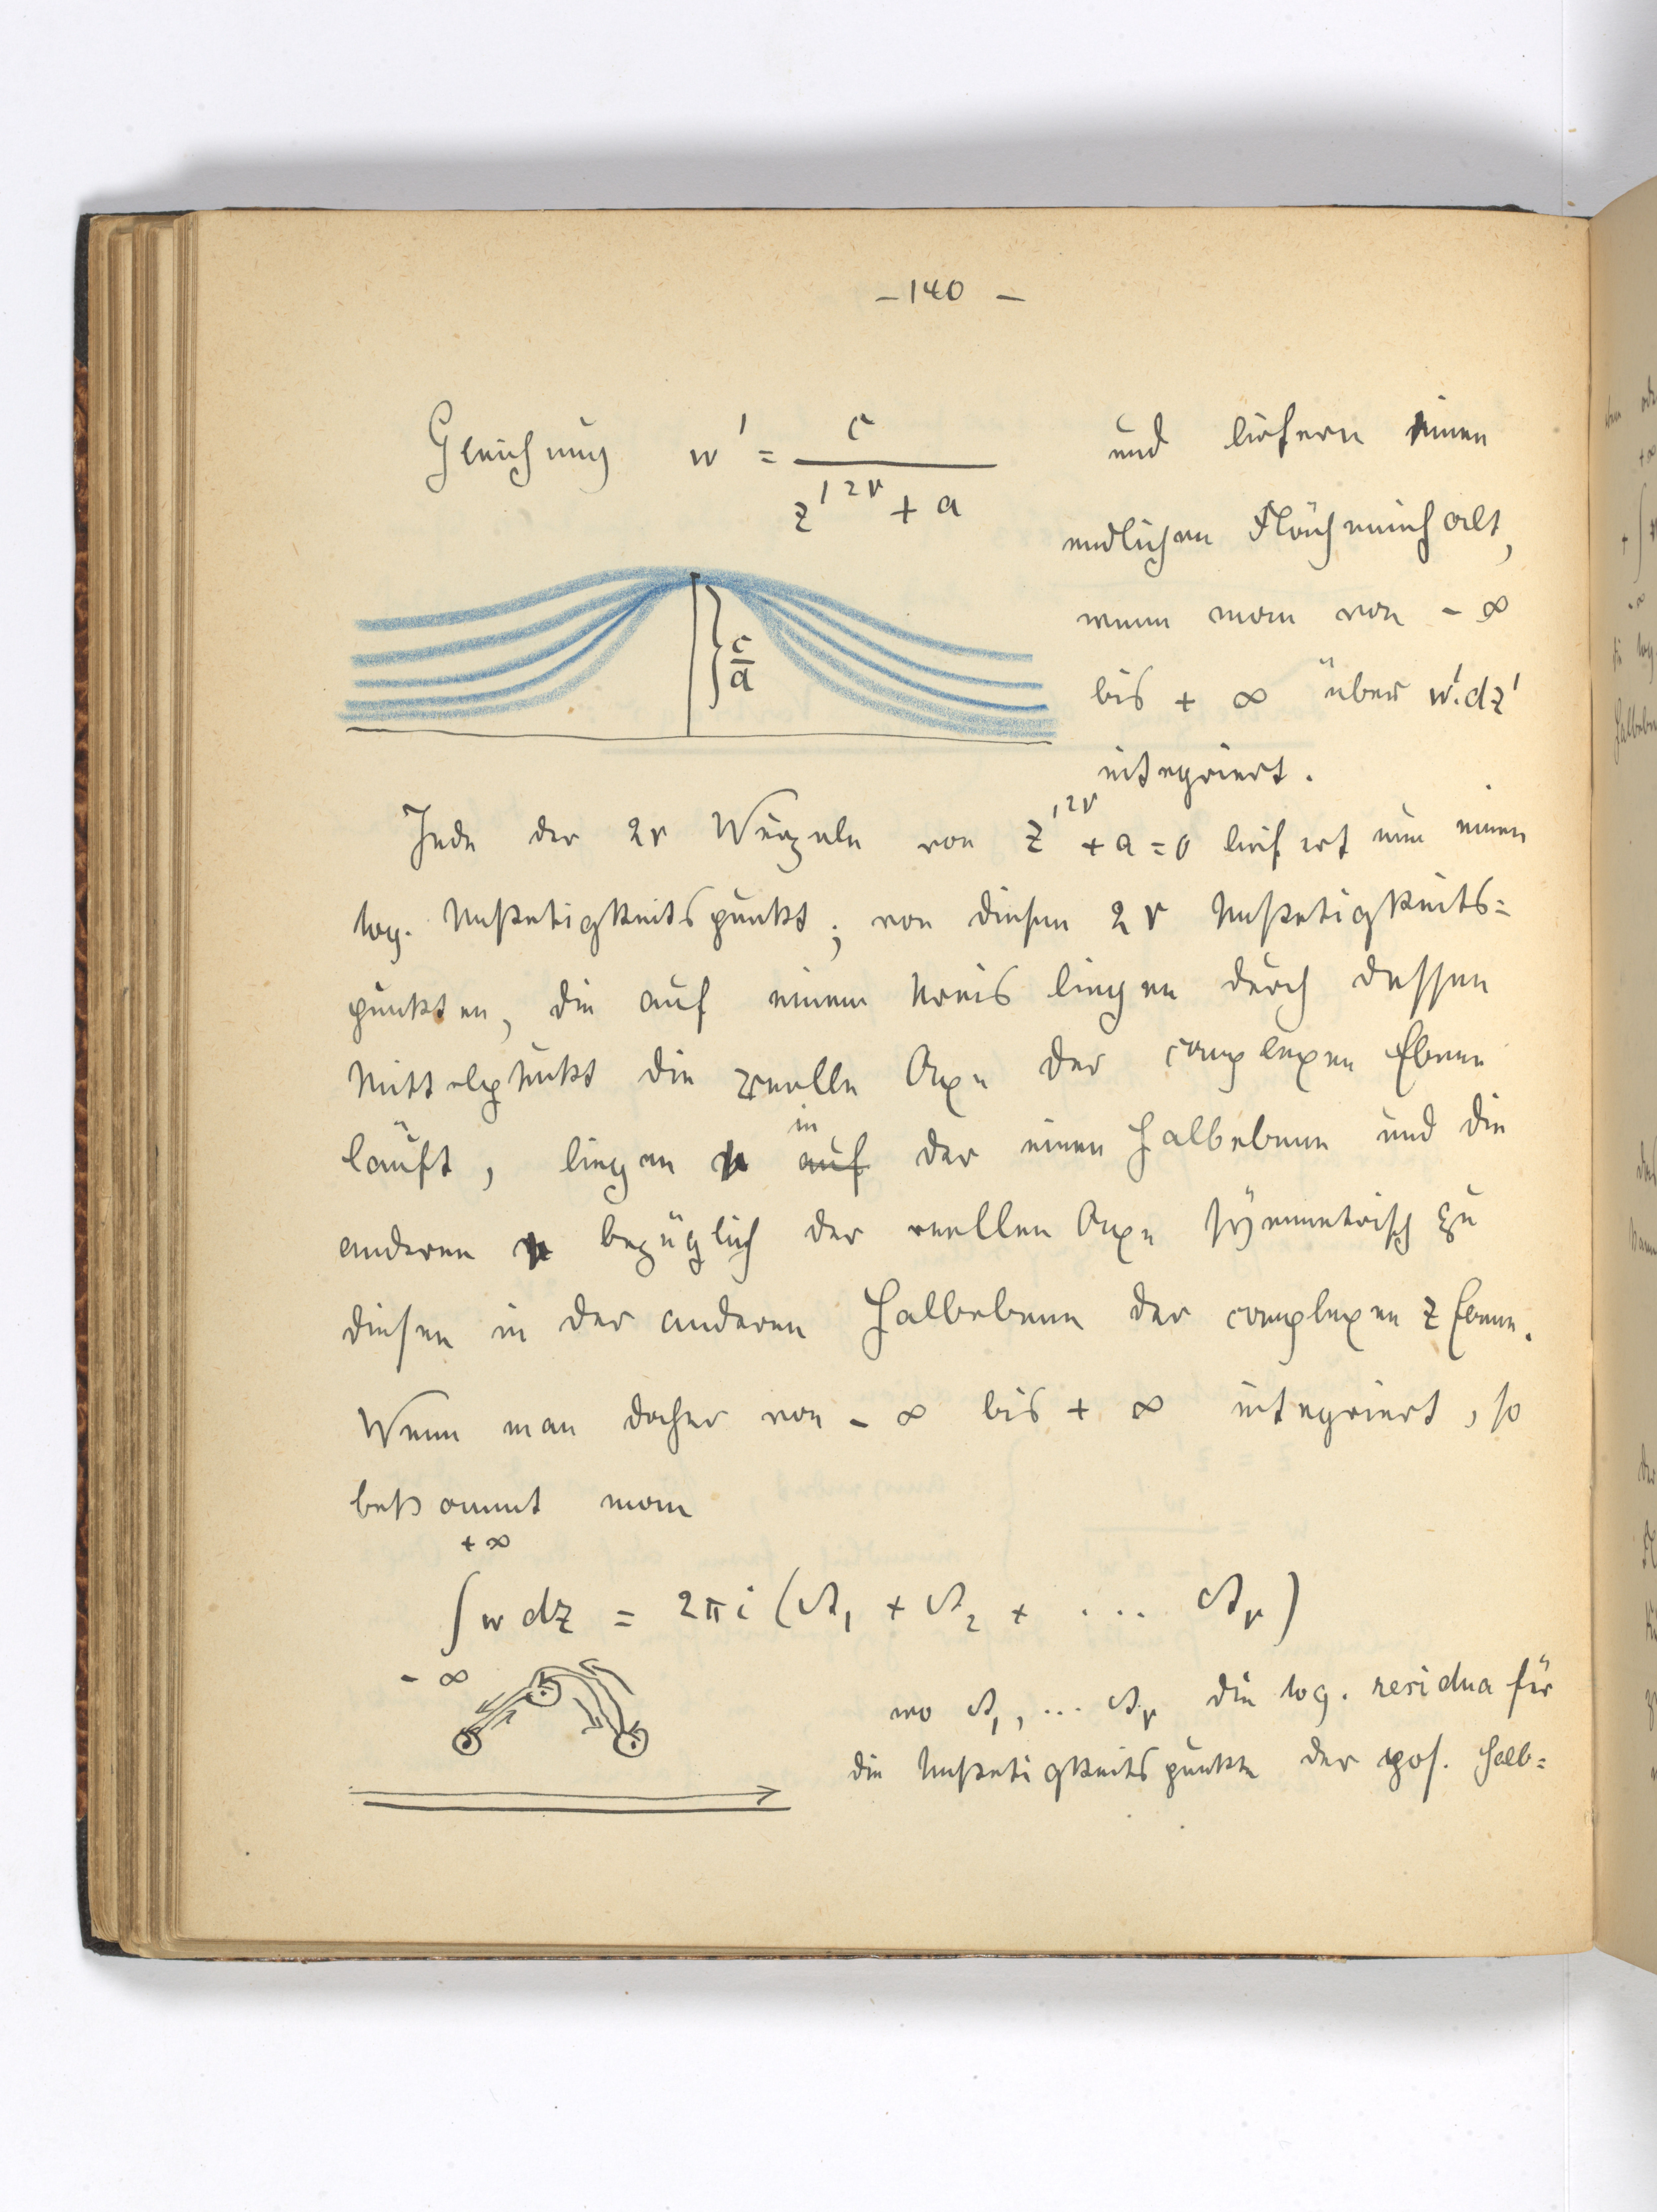 – 140 –
Gleichung w' = c / (z'^{2r} + a) und liefern einen
endlichen Flächeninhalt,
c/a
wenn man von – ∞
bis + ∞ über w'.dz'
integriert.
Jede der 2r Wurzeln von z'^{2r} + a = 0 liefert nun einen
log. Unstetigkeitspunkt; von diesen 2r Unstetigkeits=
punkten, die auf einem Kreis liegen durch dessen
Mittelpunkt die reelle Axe der complexen Ebene
läuft, liegen r in der einen Halbebene und die
anderen r bezüglich der reellen Axe symmetrisch zu
diesen in der anderen Halbebene der complexen z Ebene.
Wenn man daher von – ∞ bis + ∞ integriert, so
bekommt man
+ ∞
∫ w dz = 2πi (A₁ + A₂ + .... A_r)
– ∞
wo A₁, ... A_r die log. residua für
die Unstetigkeitspunkte der pos. Halb=